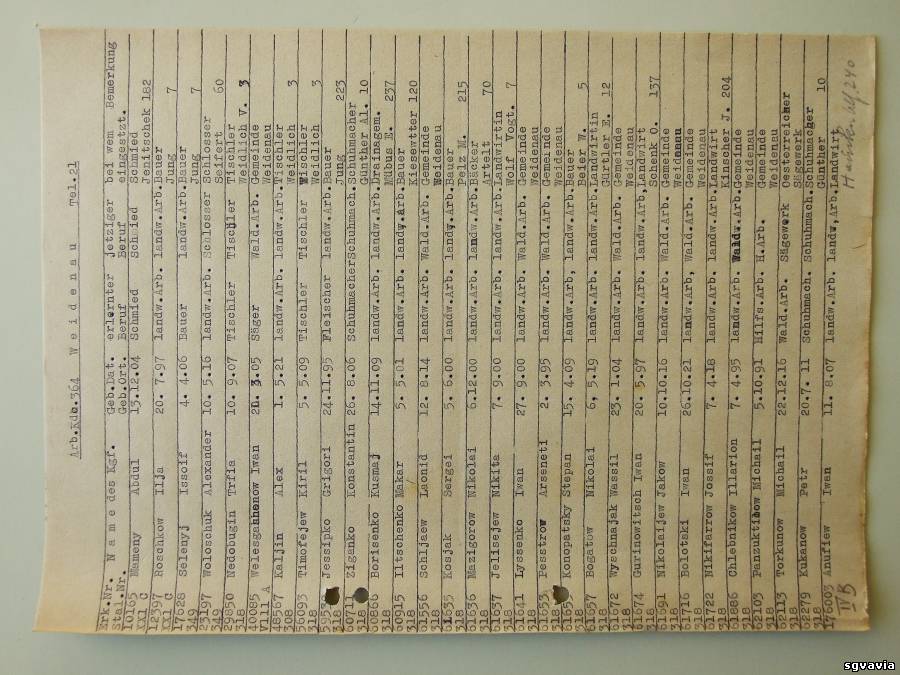 Arb.Kdo.364 Weidenau Tel.21
Erk.Nr. Name des Kgf. Geb.Dat. erlernter jetziger bei wem Bemerkung
Stal.Nr. Geb.Ort. Beruf Beruf eingestzt.
10165 Mameny Abdul 13.12.04 Schmied Schmied Schmied
XXl C Jenitschek 182
12397 Roschkow Ilja 20. 7.97 landw.Arb. landw.Arb. Bauer
XXl C Jung 7
17628 Selenyj Issoif 4. 4.06 Bauer landw.Arb. Bauer
349 Jung 7
23197 Woloschuk Alexander 10. 5.16 landw.Arb. Schlosser Schlosser
349 Seifert 60
29850 Nedobugin Trfia 10. 9.07 Tischler Tischler Tischler
318 Weidlich V. 3
30085 Iwan 3.05 Säger Wald.Arb. Gemeinde
Vlll A Weidenau
48567 Kaljin Alex 1. 5.21 landw.Arb. landw.Arb. Tischler
308 Weidlich 3
56093 Timofejew Kiril 5. 5.09 Tischler Tischler Tischler
318 Weidlich 3
Jessipko Grigori 24.11.95 Fleischer landw.Arb. Bauer
318 Jung 223
Ziganko Konstantin 26. 8.06 Schuhmacher Schuhmach. Schuhmacher
318 Günther Al. 10
60866 Borisenko Kusmaj 14.11.09 landw.Arb. landw.Arb. Drainagem.
318 Mübus E. 237
60915 Iltschenko Makar 5. 5.01 landw.Arb. landw.Arb. Bauer
318 Kiesewetter 120
61556 Sohljaew Laonid 12. 8.14 landw.Arb. Wald.Arb. Gemeinde
318 Weidenau
61635 Kosjak Sergei 5. 6.00 landw.Arb. landw.Arb. Bauer
318 Pelz M. 215
61636 Mazigorow Nikolai 6.12.00 landw.Arb. landw.Arb. Bäcker
318 Arteit 70
61637 Jelisejew Nikita 7. 9.00 landw.Arb. landw.Arb. Landwirtin
318 Wolf Vogt. 7
61641 Lyssenko Iwan 27. 9.00 landw.Arb. Wald.Arb. Gemeinde
318 Weidenau
61653 Pesstrow Arseneti 2. 3.95 landw.Arb. Wald.Arb. Gemeinde
318 Weidenau
Konopatsky Stepan 15. 4.09 landw.Arb, landw.Arb. Bauer
318 Beier W. 5
61657 Bogatow Nikolai 6, 5.19 landw.Arb. landw.Arb. Landwirtin
318 Gürtler E. 12
61672 Wyschnajak Wassil 23. 1.04 landw.Arb. Wald.Arb. Gemeinde
318 Weidenau
61674 Gurinowitsch Iwan 20. 5.97 landw.Arb. landw.Arb. Landwirt
318 Schenk O. 137
61691 Nikolaijew Jakow 10.10.16 landw.Arb, Wald.Arb. Gemeinde
318 Weidenau
61716 Bolotski Iwan 26.10.21 landw.Arb, Wald.Arb. Gemeinde
318 Weidenau
61722 Nikifarrow Jossif 7. 4.18 landw.Arb. landw.Arb. Landwirt
318 Kinscher J. 204
61886 Chlebnikow Illarion 7. 4.95 landw.Arb. Wald.Arb. Gemeinde
318 Weidenau
62103 Michail 5.10.91 Hilfs.Arb. H.Arb. Gemeinde
318 Weidenau
62113 Torkunow Michail 22.12.16 Wald.Arb. Sägewerk Oesterreicher
318 Sägewerk
62279 Kukanow Petr 20.7. 11 Schuhmach. Schuhmach. Schuhmacher
318 Günther 10
176003 Anufiew Iwan 11. 8.07 landw.Arb. landw.Arb. Landwirt
IV B 240
sgvavia